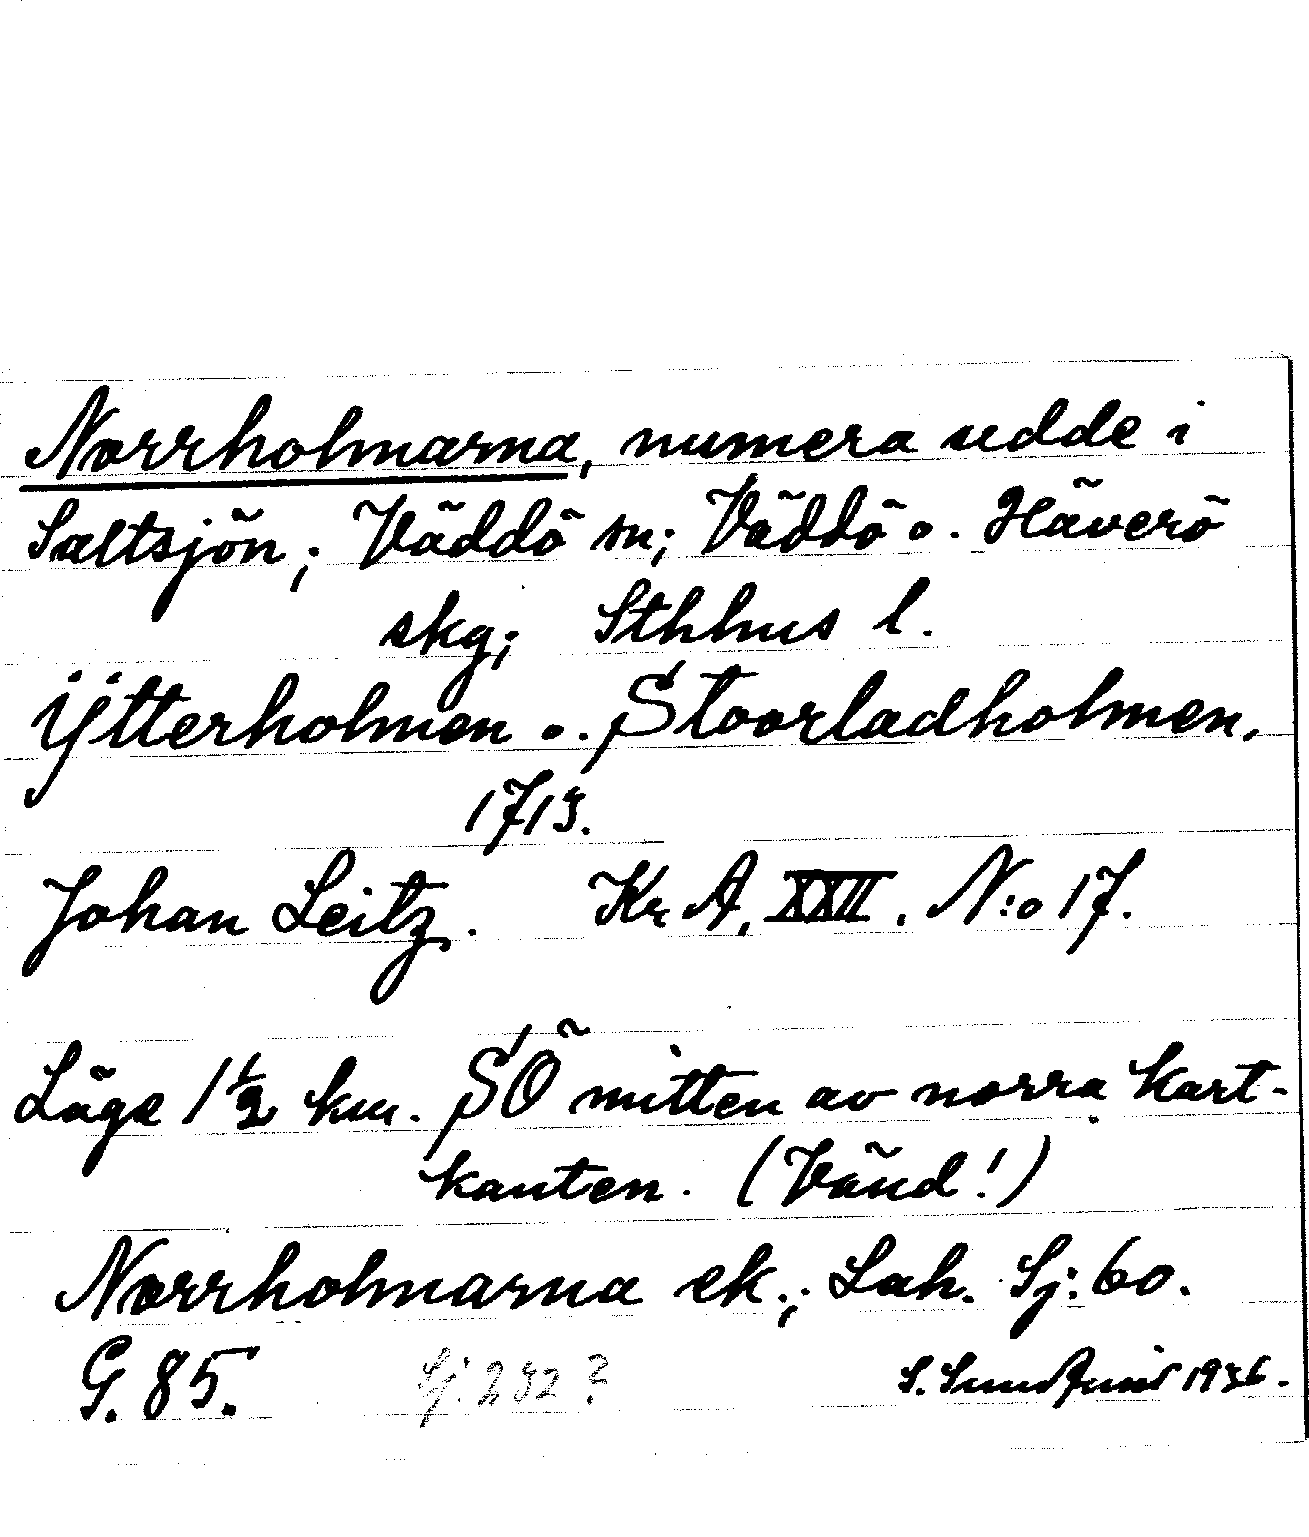 Norrholmarna, numera udde i
Saltsjön; Väddö sn; Väddö o. Häverö
skg; Sthhus l.
Ytterholmen o. Stoorladholmen,
1713.
Johan Leitz. Kr A, XXII. N:o 17.
Läge 1 1/2 km. SÖ mitten av norra kart-
kanten. (Vänd!)
Norrholmarna ek.; Lah. Sj: 60.
G. 85. Sj: 232? S. Sundquist 1936.